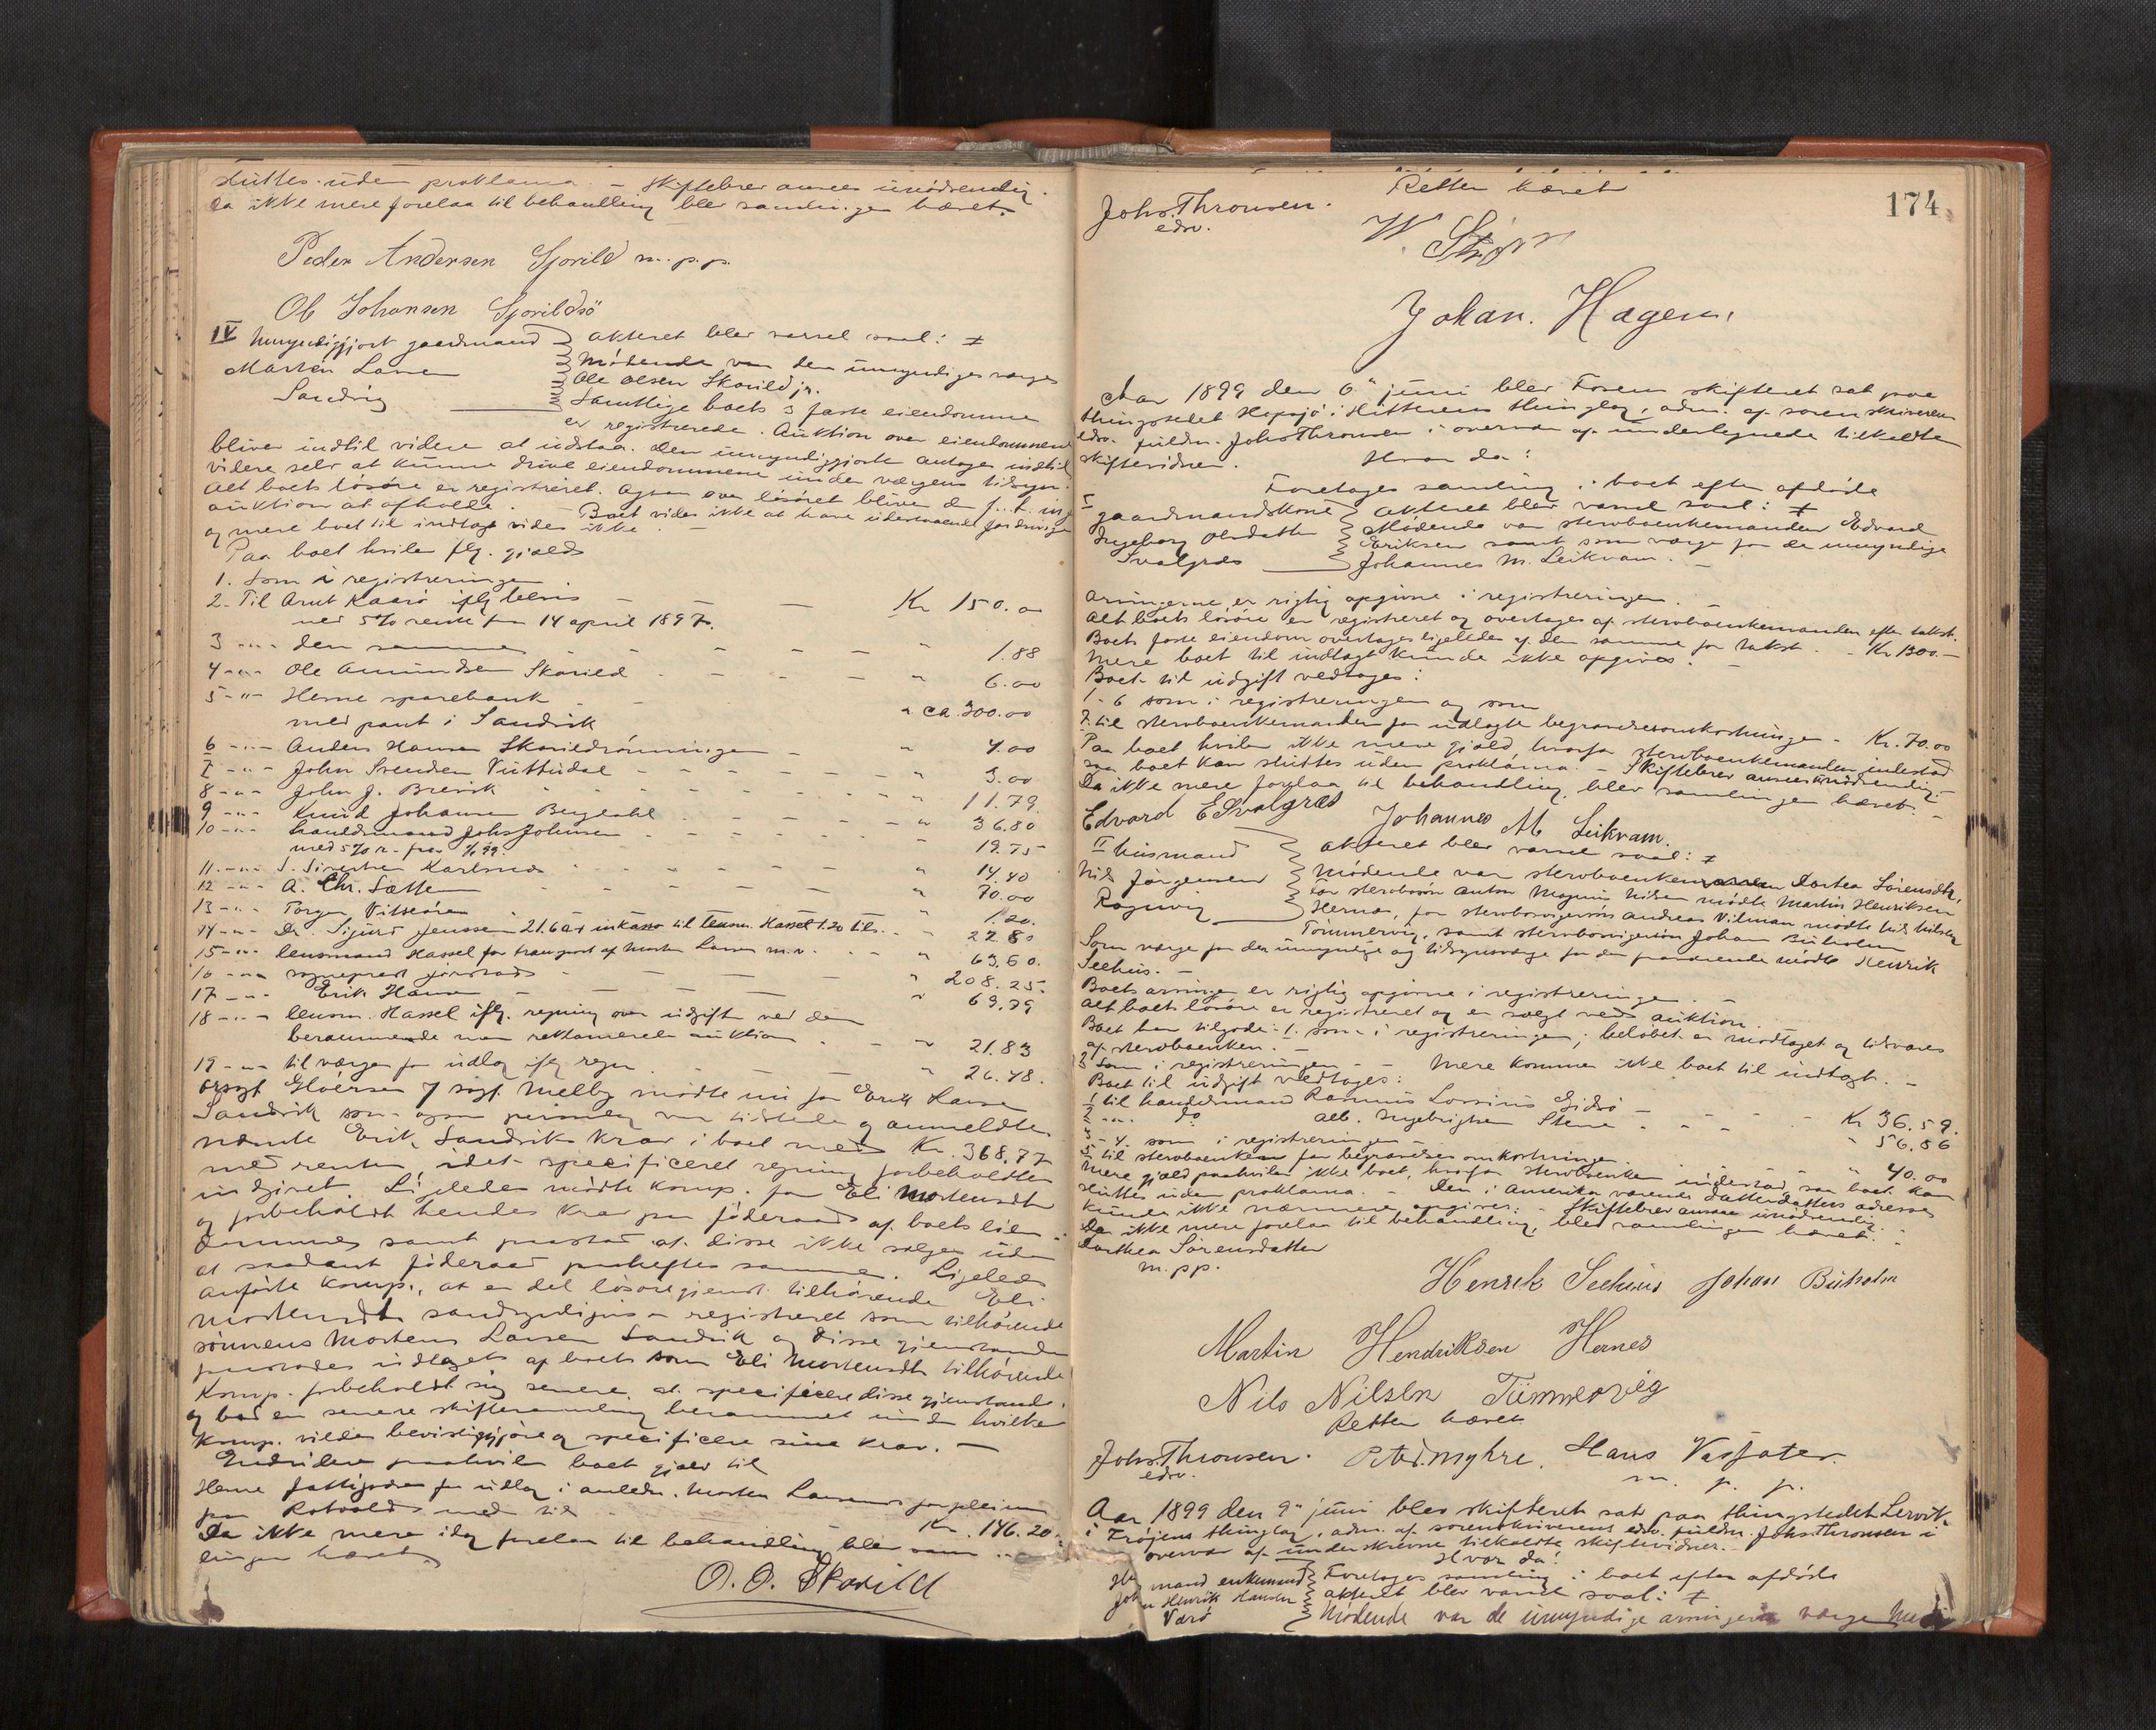 sluttes uden proklama. – Skiftebrev ansees unødvendig.
Da ikke mere forelaa til behandling blev samlingen hævet.
Peder Andersen Gjovild m.p.p.
Ole Johansen Gjovildsø
IV Umyndiggjort gaardmand
Morten Larsen
Sandvig
Aktoret blev varsel saal: ≠
Mødende var den umyndiges værge
Ole Olsen Skarild jr.
Samtlige boets 3 faste eiendomme
er registrerede. Auktion over eiendommene
bliver indtil videre at udstaa. Den umyndiggjorte antages indtil
videre selv at kunne drive eiendommene under værgens tilsyn.
Alt boets løsøre er registreret. Ogsaa over løsøret bliver d. f. t. ing
auktion at afholde. – Boet vides ikke at have udestaaende fordringer
og mere boet til indtægt vides ikke. –
Paa boet hviler flg. gjæld
1. Som i registreringen.
2. Til Arnt Kaasø iflg bevis – – – Kr 150.00
med 5% rente fra 14 april 1897.
3 -"- den samme – – – – " 1.88
4 -"- Ole Amundsen Skarild – – – " 6.00
5 -"- Hemne sparebank – – – " ca. 300.00
med pant i Sandvik
6 -"- Anders Hansen Skarildrønningen – – " 4.00
7 -"- John Svendsen Vuttudal – – – " 3.00
8 -"- John J. Brevik – – – " 11.79.
9 -"- Knud Johansen Bergdahl – – – " 36.80
10 -"- handelsmand Johs Johnsen – – – " 19.75
med 5% r. fra 1/1 99.
11 -"- S. Sivertsen Karlsnæs – – – " 14.40
12 -"- A. Chr. Sættem – – – " 70.00
13 -"- Torger Vitsøren – – – " 1.20.
14 -"- Dr. Sigurd Jenssen 21.60 + inkasso til lensm. Hassel 1.20 tils. – " 22.80
15 -"- lensmand Hassel for transport af Morten Larsen m.v. – – " 63.60.
16 -"- sogneprest Jørstad – – – " 208.25.
17 -"- Erik Hansen – – – " 69.79
18 -"- lensm. Hassel iflg. regning over udgifter ved den
berammede men reklamerede auktion – – " 21.83
19 -"- til værgen for udlæg iflg regn. – – " 26.48.
Orsagf Gløersen f sagf. Melby mødte nu for Erik Hansen
Sandvik som ogsaa personlig var tilstede og anmeldte
nævnte Erik Sandviks krav i boet med Kr. 368,77
med renter, idet specificeret regning forbeholdtes
indgivet. Ligeledes mødte komp. for Eli Mortensdt
og forbeholdt hendes krav paa føderaad af boets eien-
domme samt paastod at disse ikke sælges uden
at saadant føderaad paaheftes samme. Ligeledes
anførte komp., at en del løsøregjenst. tilhørende Eli
Mortensdt. sandsynligvis er registreret som tilhørende
sønnens Mortens Larsen Sandvik og disse gjenstande
paastodes udtaget af boet som Eli Mortensdt tilhørende.
Komp. forbeholdt sig senere at specificere disse gjenstande
og bad en senere skiftesamling berammet inden hvilken
komp. vilde bevisliggjøre og specificere sine krav. –
Endvidere paahviler boet gjæld til
Hemne fattigvæsen for udlæg i anledn. Morten Larsens forpleining
paa Rotvold med til – Kr. 146.20.
Da ikke mere idag forelaa til behandling blev sam
lingen hævet.
O. O. Skarild
174.
Retten hævet
Johs. Thronsen.
edsv.
W. Strøm
Johan. Hagen,
Aar 1899 den 6" juni blev Fosens skifteret sat paa
thingstedet Hopsjø i Hitterens thinglag, adm. af sorenskriverens
edsv. fuldm. Johs Thronsen i overvær af undertegnede tilkaldte
skiftevidner. Hvor da:
Foretages samling i boet efter afdøde
I gaardmandskone
Ingeborg Olsdatter
Svalgræs
Aktoret blev varsel saal: ≠
Mødende var sterboenkemanden Edvard
Eriksen samt som værge for de umyndige
Johannes M. Leikvam. –
Arvingerne er rigtig opgivne i registreringen. –
Alt boets løsøre er registreret og overtages af sterboenkemanden efter takst.
Boets faste eiendom overtages ligeledes af den samme for takst. – Kr 1300. –
Mere boet til indtægt kunde ikke opgives. –
Boet til udgift vedtages:
1 - 6 som i registreringen og som
7. til sterboenkemanden for udlagte begravelsesomkostninger – Kr. 70.00
Paa boet hviler ikke mere gjæld hvorfor sterboenkemanden indestod
saa boet kan sluttes uden proklama. – Skiftebrev ansees unødvendig. –
Da ikke mere forelaa til behandling, blev samlingen hævet. –
Edvard E Svalgræs Johannes M Leikvam.
II husmand
Nils Jørgensen
Ragnvig
Aktoret blev varsel saal: ≠
Mødende var sterboenken Dortea Sørensdtr,
For sterbosøn Anton Magnus Nilsen mødte Martin Henriksen
Hernæs, for sterbosvigersøn Andreas Vilman mødte Nils Nilsen
Tømmervig, samt sterbosvigersøn Johan Buholm
Som værge for den umyndige og tilsynsværge for den fraværende mødte Henrik
Seehus. –
Boets arvinger er rigtig opgivne i registreringen. –
Alt boets løsøre er registreret og er solgt ved auktion.
Boet har tilgode: 1. som i registreringen; beløbet er modtaget og tilsvares
af sterboenken. –
2 Som i registreringen – – Mere kommer ikke boet til indtægt. –
Boet til udgift vedtages:
1 til handelsmand Rasmus Lossius Gidsø – – – – Kr 36.59.
2 -"- do alb. Ingebrigtsen Stene – – – " 56.86
3 - 4. som i registreringen –
5 til sterboenken for begravelsesomkostninger – " 40.00
Mere gjæld paahviler ikke boet, hvorfor sterboenken indestod, saa boet kan
sluttes uden proklama. – Den i Amerika værende datterdatters adresse
kunde ikke nærmere opgives. – Skiftebrev ansees unødvendig. –
Da ikke mere forelaa til behandling, blev samlingen hævet. –
Dorthea Sørensdatter
m.pp.
Henrik Seehuus Johan Buholm
Martin Hendriksen Hernes
Nils Nilsen Tümmervig
Retten hævet
Johs. Thronsen. Peter Myhre. Hans Vasfater.
edsv. m. p. p.
Aar 1899 den 9" juni blev skifteret sat paa thingstedet Lervik
i Frøjens thinglag, adm. af sorenskriverens edsv. fuldm. Johs. Thronsen i
overvær af underskrevne tilkaldte skiftevidner. –
Hvor da:
Foretages samling i boet efter afdøde
mand enkemand
Henrik Hansen
Værø
aktoret blev varsel saal: ≠
Mødende var de umyndige arvingers værge